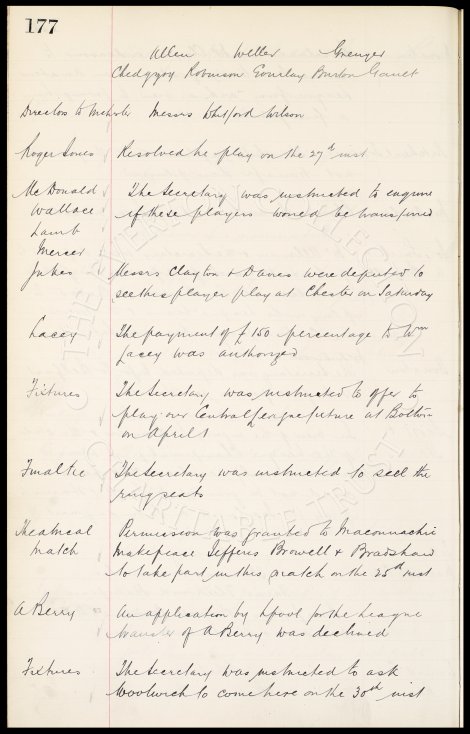 177
Allen Weller Grenyer
Chedgzoy Robinson Gourlay Burton Gault
Directors to Mchester Messrs Whitford Wilson
Roger Jones Resolved he play on the 27th inst
McDonald The Secretary was instructed to enquire
Wallace if these players would be transferred
Lamb
Mercer
Jukes Messrs Clayton & Davies were deputed to
see this player play at Chester on Saturday
Lacey The payment of £150 percentage to Wm
Lacey was authorized
Fixtures The Secretary was instructed to offer to
play our Central League fixture at Bolton
on April 1
Final tie The Secretary was instructed to sell the
ring seats
Theatrical Permission was granted to Maconnachie
Match Makepeace Jefferis Browell & Bradshaw
to take part in this match on the 25th inst
A Berry An application by Lpool for the League
transfer of A Berry was declined
Fixtures The Secretary was instructed to ask
Woolwich to come here on the 30th inst
THE EVERTON COLLECTION
CHARITABLE TRUST